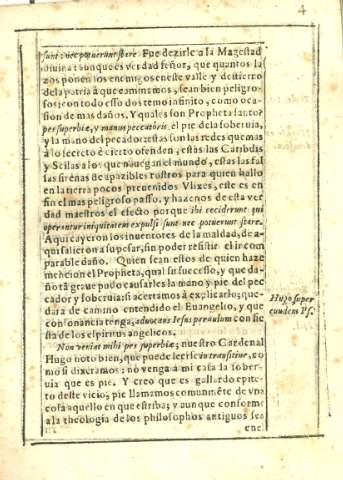 4
sunt: nec potuerunt stare. Fue dezirle a la Magestad
diuina: aunque es verdad señor, que quantos la
zos ponen los enemigos en este valle y destierro
de la patria à que caminamos, sean bien peligro-
sos; con todo esso dos temo infinito, como oca
sion de mas daños. Y quales son Propheta santo?
pes superbiæ, y manus peccatoris. el pie de la soberuia,
y la mano del pecador: estas son las redes que mas
à lo secreto è cierto ofenden, estas las Caribdis
y Scilas a los que nauegan el mundo, estas las fal
sas sirenas de apazibles rostros para quien hallo
en la tierra pocos preuenidos Vlixes, este es en
fin el mas peligroso passo. y haze nos de esta ver
dad maestros el efecto porque ibi ceciderunt qui
operantur iniquitatem expulsi sunt nec potuerunt stare.
Aqui cayeron los inuentores de la maldad, de a-
qui salieron a su pesar, sin poder resistir el incom
parable daño. Quien sean estos de quien haze
mencion el Propheta, qual su sucesso, y que da-
ño tã graue pudo causarles la mano y pie del pec
cador y soberuia: si acertamos à explicarlo; que-
dara de camino entendido el Euangelio, y que
consonancia tenga, aduocans Iesus paruulum con fie
sta de los espiritus angelicos.
Hugo super
eundem Ps.
Non veniat mihi pes superbiæ; nuestro Cardenal
Hugo noto bien, que puede leerse intransitiue, co
mo si dixeramos: no venga à mi casa la sober-
uia que es pie. Y creo que es gallardo epite-
to deste vicio; pie llamamos comunmẽte de vna
cosa aquello en que estriba; y aunque conforme
a la theologia de los philosophos antiguos sea
ene